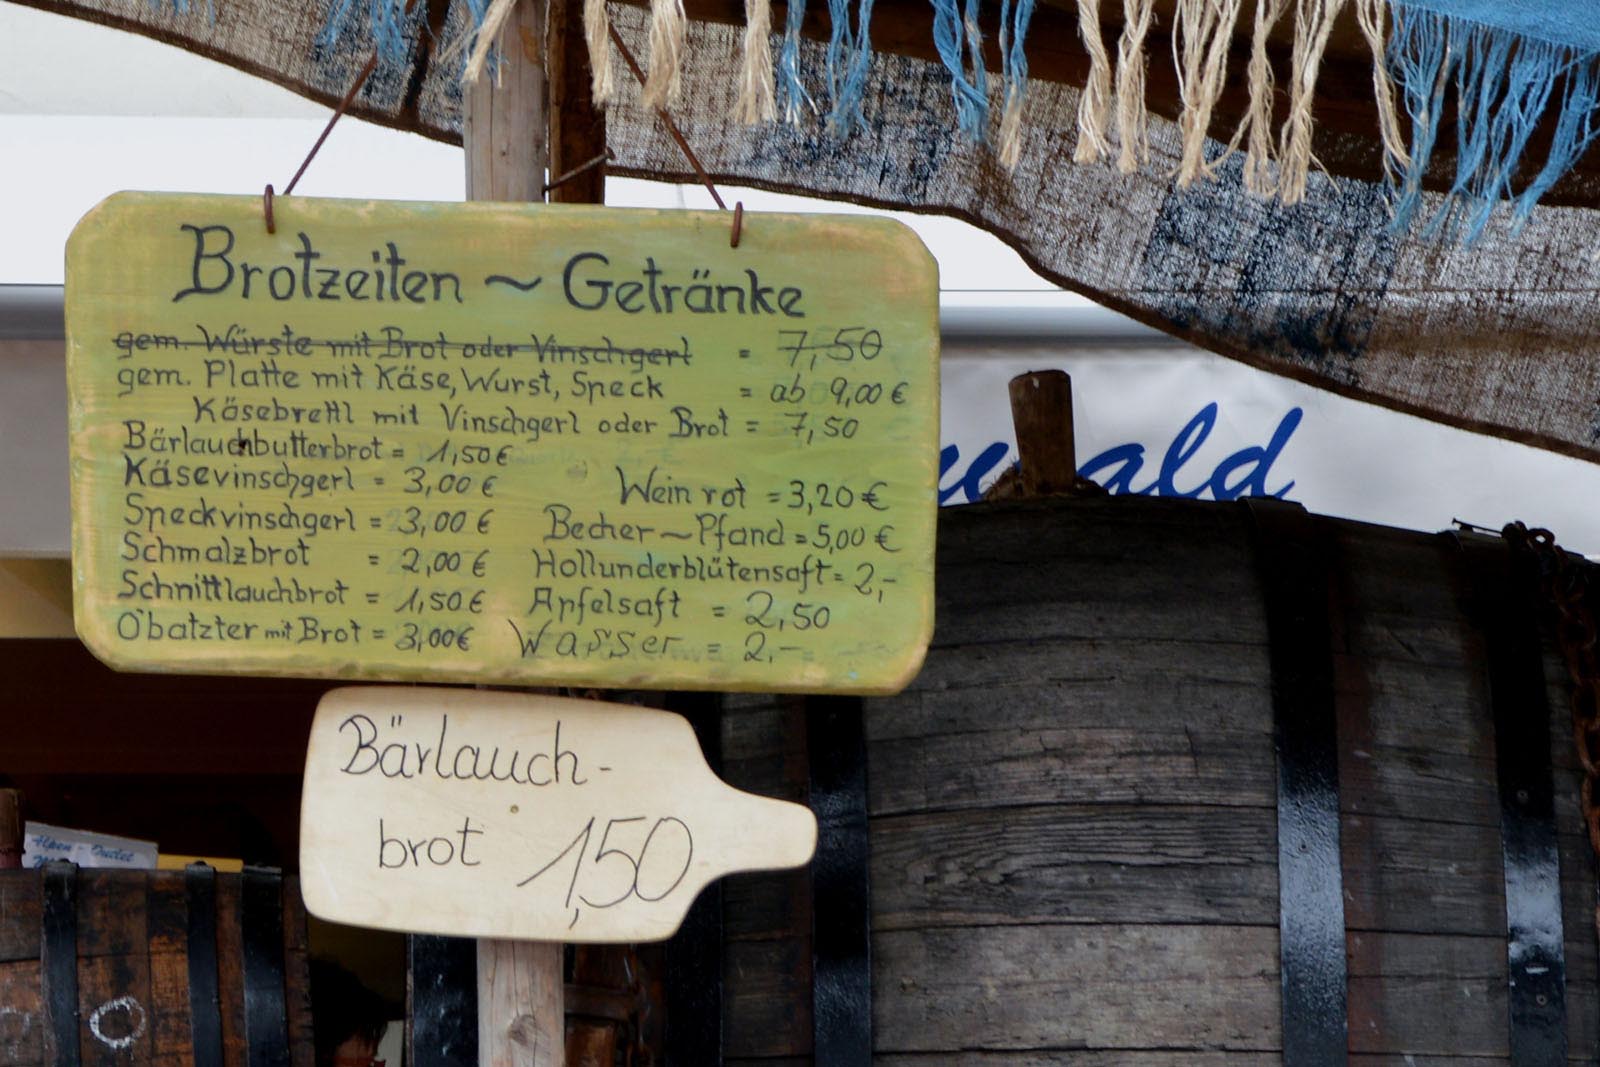 Brotzeiten ~ Getränke
gem. Würste mit Brot oder Vinschgerl = 7,50
gem. Platte mit Käse, Wurst, Speck = ab 9,00 €
Käsebrettl mit Vinschgerl oder Brot = 7,50
Bärlauchbutterbrot = 1,50 €
Käsevinschgerl = 3,00 €
Speckvinschgerl = 3,00 €
Schmalzbrot = 2,00 €
Schnittlauchbrot = 1,50 €
O'batzter mit Brot = 3,00 €
Wein rot = 3,20 €
Becher ~ Pfand = 5,00 €
Hollunderblütensaft = 2,-
Apfelsaft = 2,50
Wasser = 2,-
Bärlauch-
brot 1,50
wald
Alpen - Dudler